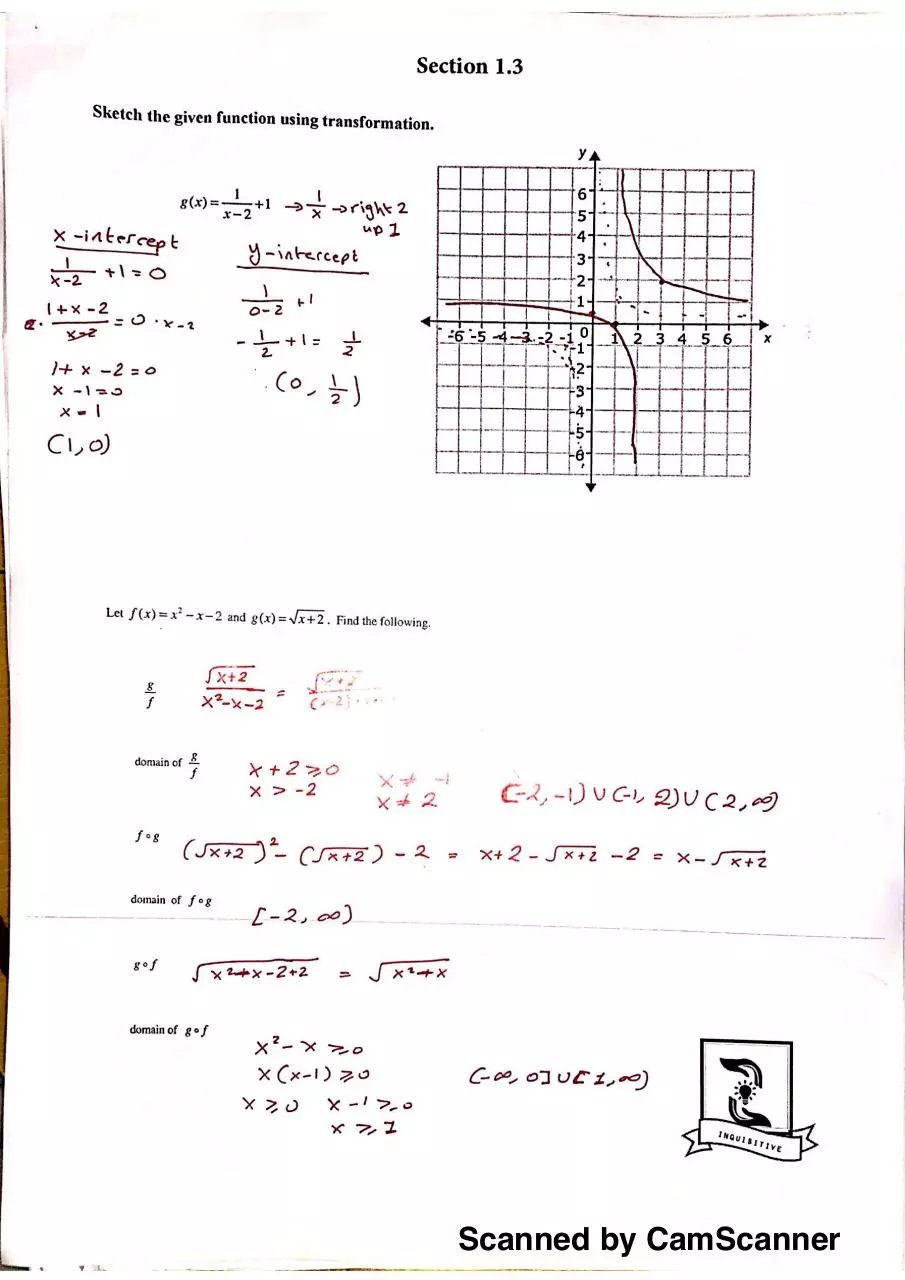 Section 1.3
Sketch the given function using transformation.
g(x) = 1/(x-2) + 1 → 1/x → right 2
up 1
x-intercept
1/(x-2) + 1 = 0
(1+x-2)/(x-2) = 0 · x-2
1+ x -2 = 0
x -1 = 0
x = 1
(1,0)
y-intercept
1/(0-2) +1
- 1/2 + 1 = 1/2
(0, 1/2)
y
6
5
4
3
2
1
-6 -5 -4 -3 -2 -1 0 1 2 3 4 5 6 x
-1
-2
-3
-4
-5
-6
Let f(x) = x² - x - 2 and g(x) = √(x+2). Find the following.
g/f √(x+2)/(x²-x-2) = √(x+2)/(x-2)
domain of g/f
x + 2 ⩾ 0
x > -2
x ≠ -1
x ≠ 2
(-2, -1) ∪ (-1, 2) ∪ (2, ∞)
f∘g (√(x+2))² - (√(x+2)) - 2 = x+2 - √(x+2) - 2 = x - √(x+2)
domain of f∘g
[-2, ∞)
g∘f √(x²+x-2+2) = √(x²+x)
domain of g∘f
x² - x ⩾ 0
x(x-1) ⩾ 0
x ⩾ 0 x - 1 ⩾ 0
x ⩾ 1
(-∞, 0] ∪ [1, ∞)
INQUISITIVE
Scanned by CamScanner